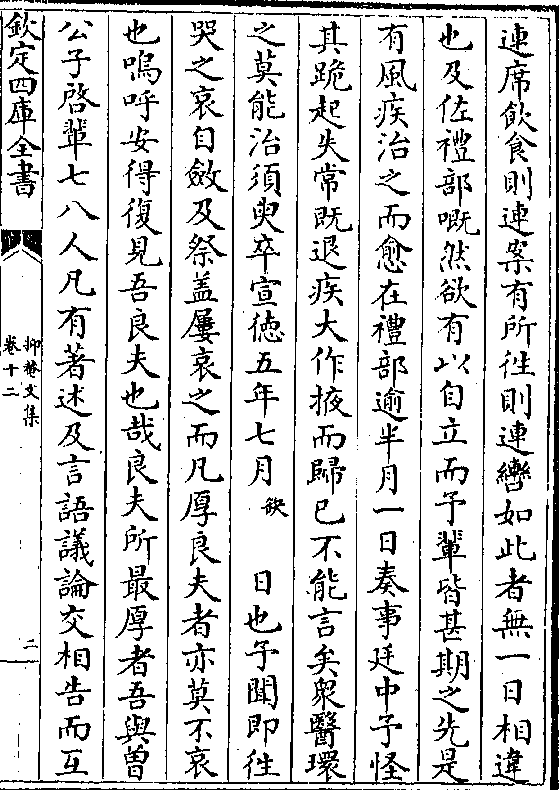 連席飲食則連案有所徃則連轡如此者無一日相違
也及佐禮部嘅然欲有以自立而予輩皆甚期之先是
有風疾治之而愈在禮部逾半月一日奏事廷中予怪
其跪起失常既退疾大作掖而歸已不能言矣衆醫環
之莫能治須臾卒宣徳五年七月缺日也予聞即徃
哭之哀自斂及祭盖屢哀之而凡厚良夫者亦莫不哀
也嗚呼安得復見吾良夫也哉良夫所最厚者吾與曽
公子啓輩七八人凡有著述及言語議論交相告而互
欽定四庫全書
抑菴文集
卷十二
二